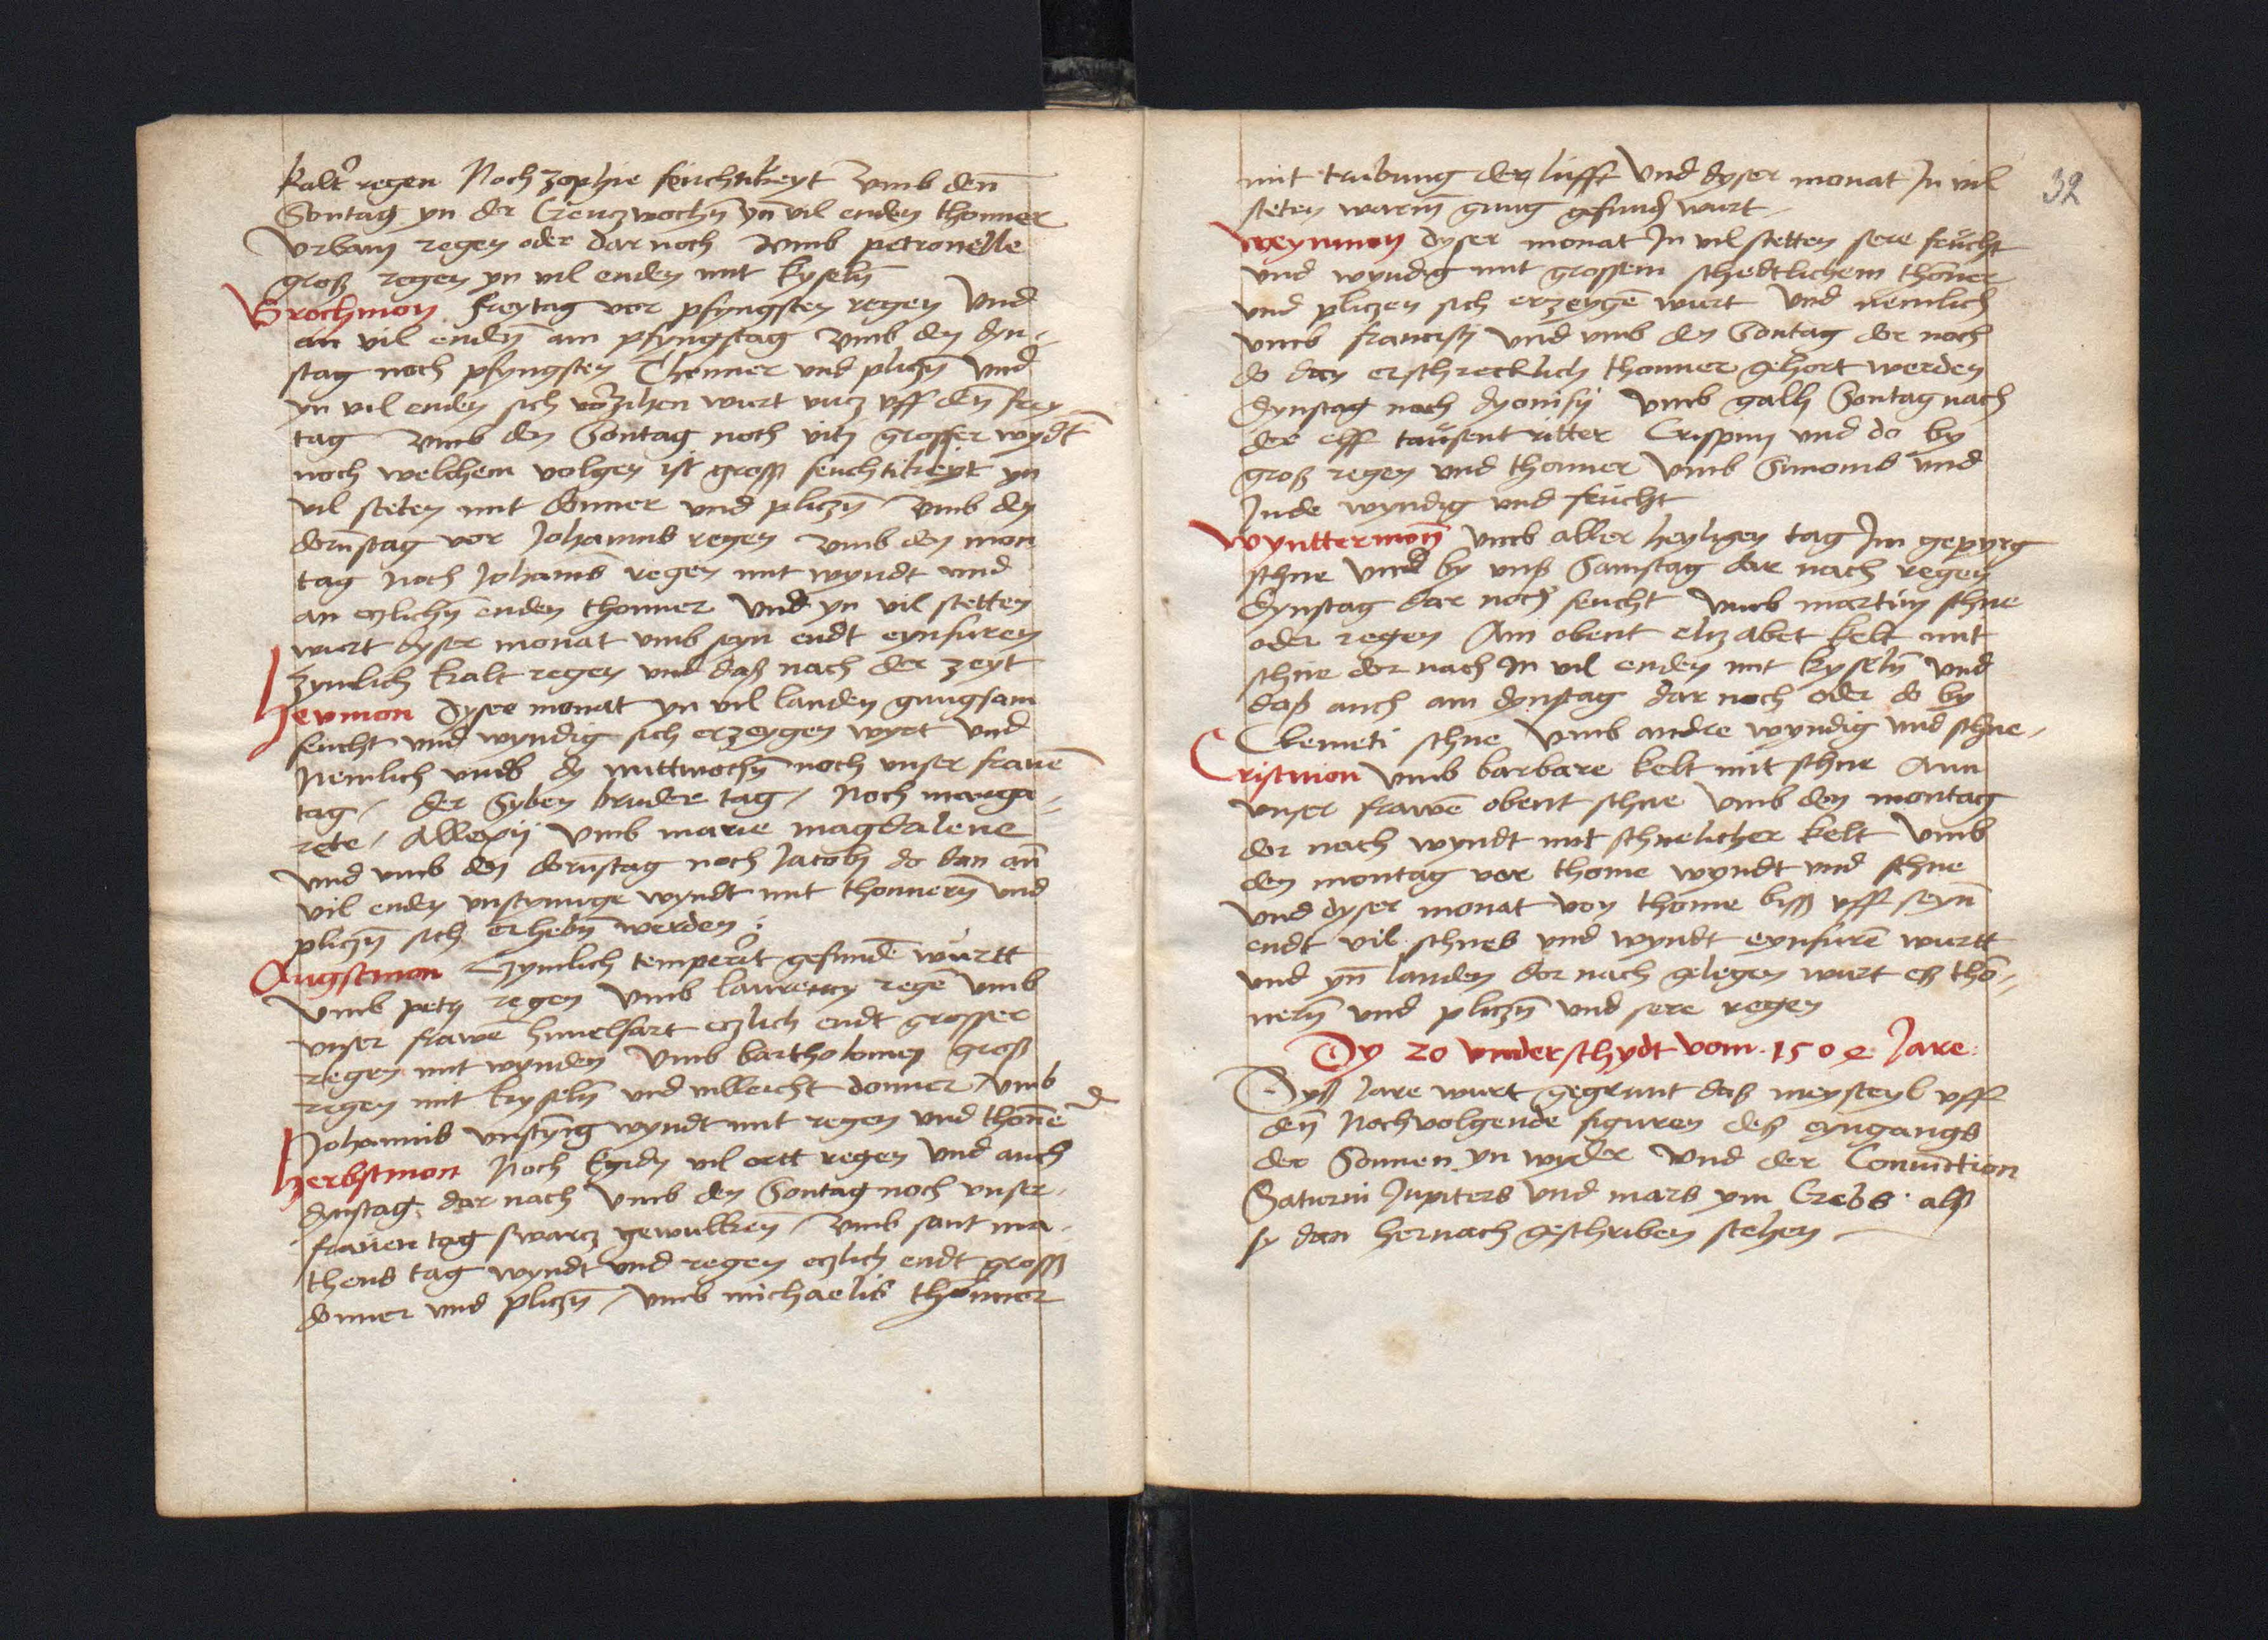 kalt regen Noch zophie feuchtikeyt vmb den̄
Sontag yn der Creuczwochn̄ yn̄ vil enden thonner
Vrbani regen oder dar noch vmb petronelle
groß regen yn vil enden mit kyseln̄
Brochmon freytag vor pfyngsten regen vnd
an vil enden̄ am pfyngstag vmb den dyn-
stag noch pfyngsten Thonner vnd pliczn̄ vnd
yn vil enden sich verzihen wurt vncz vff den̄ frey
tag vmb den Sontag noch viti grosser wydt
noch welchem volgen ist gross feuchtikeyt yn
vil steten mit donner vnd pliczn̄ vmb den
dorn̄stag vor Johannis regen vmb den mon
tag noch Johanis regen mit wyndt vnd
an eczlichn̄ enden thonner vnd yn vil stetten
wurt dyser monat vmb seyn endt eynfuren
zymlich kalt regen vnd daß nach der zeyt
Heumon Dyser monat yn vil landen gnugsam
feucht vnd wyndig sich erzeygen wyrt vnd
Nemlich vmb dy mittwochn̄ noch vnser frauē
tag / der Syben bruder tag / Noch marga-
rete / Allexij vmb marie magdalene
vnd vmb den dorn̄stag noch Jacobi do dan an̄
vil enden vnstymige wyndt mit thonnern̄ vnd
pliczn̄ sich erhebn̄ werden :
Augstmon Zymlich temperirt gefundē wurtt
vmb petri regen vmb laurency regē vmb
vnser frawē himelfart eczlich endt grosser
regen mit wynden vmb bartholomei groß
regen mit kyseln̄ vnd villeicht donner / vmb
Johannis vnstymg wyndt mit regen vnd thonē
Herbstmon Noch Egidij vil ortt regen vnd auch
dynstag dar nach vmb den Sontag noch vnser
frauen tag swarcz gewulken̄ / vmb sant ma-
theus tag wyndt vnd regen eczlich endt gross
donner vnd pliczn̄ / vmb michaelis thonner
32
mit trubung der lufft vnd dyser monat In vil
steten warm̄ gnug gefund wurt
Weynmon dyser monat In vil stetten sere feucht
vnd wyndig mit grossem schedtlichem thoner
vnd pliczen sich erzeygē wurt vnd nemlich
vmb francisci vnd vmb den Sontag dor noch
do dan erschrecklich thonner gehort werden
dynstag noch dyonisij vmb galli Sontag nach
der elff tausent ritter Crispini vnd do by
groß regen vnd thonner vmb Simonis vnd
Jude wyndig vnd feucht
Wynttermon̄ vmb aller heyligen tag Im gepyrg
schne vnd by vnß Samstag dar nach regen
dynstag dar noch feucht vmb martini schne
oder regen Am obent elizabet kelt mit
schne dor nach In vil enden mit kyseln̄ vnd
daß auch am dynstag dar noch oder do by
Clemeti schne vmb andre wyndig vnd schne-
Cristmon vmb barbare kelt mit schne Ann
vnser frawē obent schne vmb den montag
dor nach wyndt mit schnelicher kelt vmb
den montag vor thome wyndt vnd schne
vnd dyser monat von thome biss vff seyn̄
endt vil schnes vnd wyndt eynfurē wurtt
vnd yn̄ landen dor nach gelegen wurt eß thō-
nern̄ vnd pliczn̄ vnd sere regen
Dy 20 vnderschydt vom 1502 Jare
Dyß Jare wurt gegrunt daß meysteyl vff
den̄ Nochvolgende figuren deß eyngangs
der Sonnen yn wyder vnd der Coniuction
Saturni Jupiters vnd mars ym Crebs alß
sy dan hernach geschriben stehen